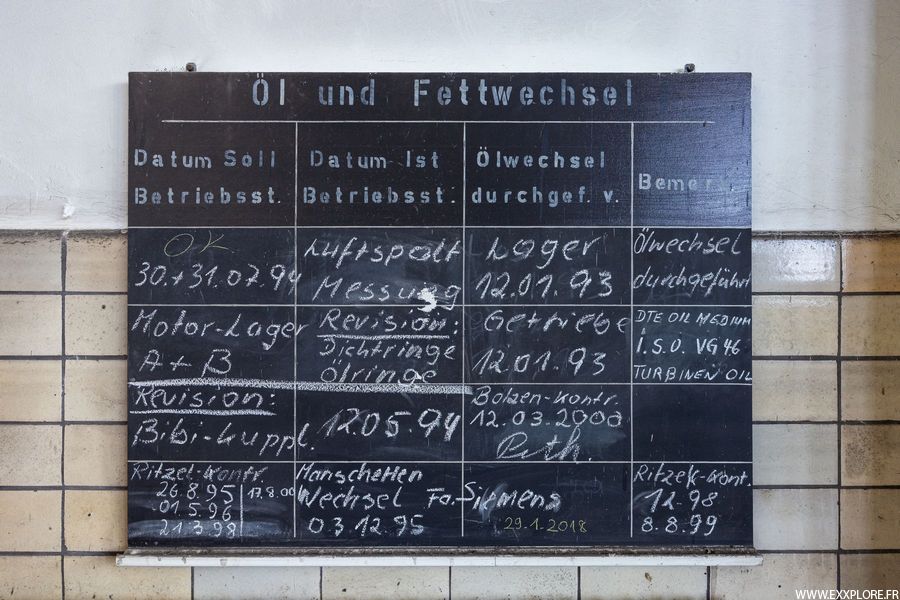 Öl und Fettwechsel
Datum Soll
Betriebsst.
Datum Ist
Betriebsst.
Ölwechsel
durchgef. v.
Bemer
O.K
30.+31.07.94
Luftspalt
Messung
Lager
12.01.93
Ölwechsel
durchgeführt
Motor-Lager
A + B
Revision:
Dichtringe
Ölringe
Getriebe
12.01.93
DTE OIL MEDIUM
I.S.O. VG 46
TURBINEN OIL
Revision:
Bibi-Kuppl.
12.05.94
Bolzen-Kontr.
12.03.2000
Ritzel-Kontr.
26.8.95 17.8.00
01.5.96
21.3.98
Manschetten
Wechsel Fa. Siemens
03.12.95
29.1.2018
Ritzel-Kont.
12.98
8.8.99
WWW.EXXPLORE.FR